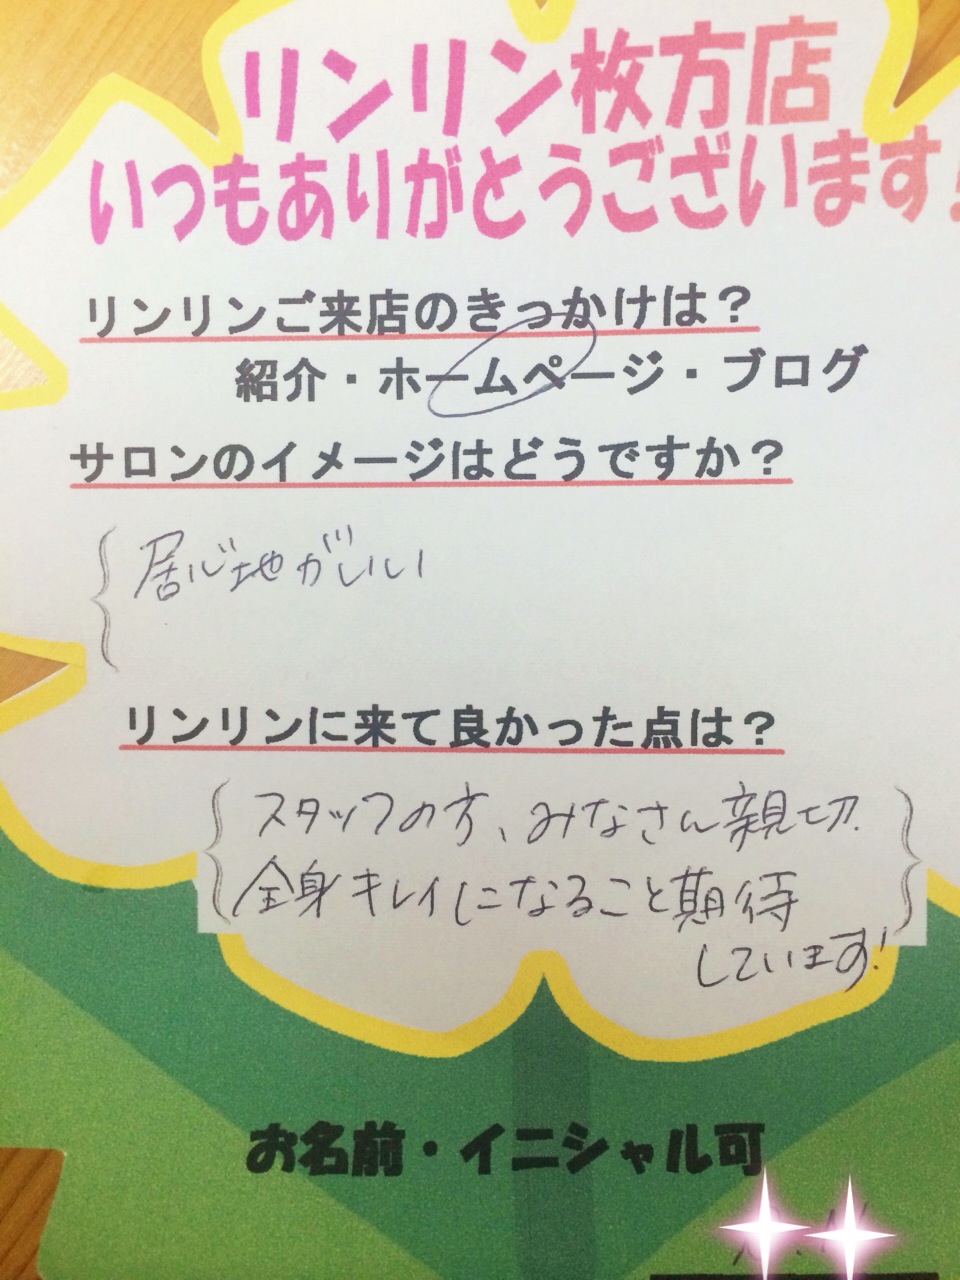 リンリン枚方店
いつもありがとうございます!
リンリンご来店のきっかけは？
紹介・ホームページ・ブログ
サロンのイメージはどうですか？
居心地がいい
リンリンに来て良かった点は？
スタッフの方、みなさん親切.
全身キレイになること期待
しています!
お名前・イニシャル可